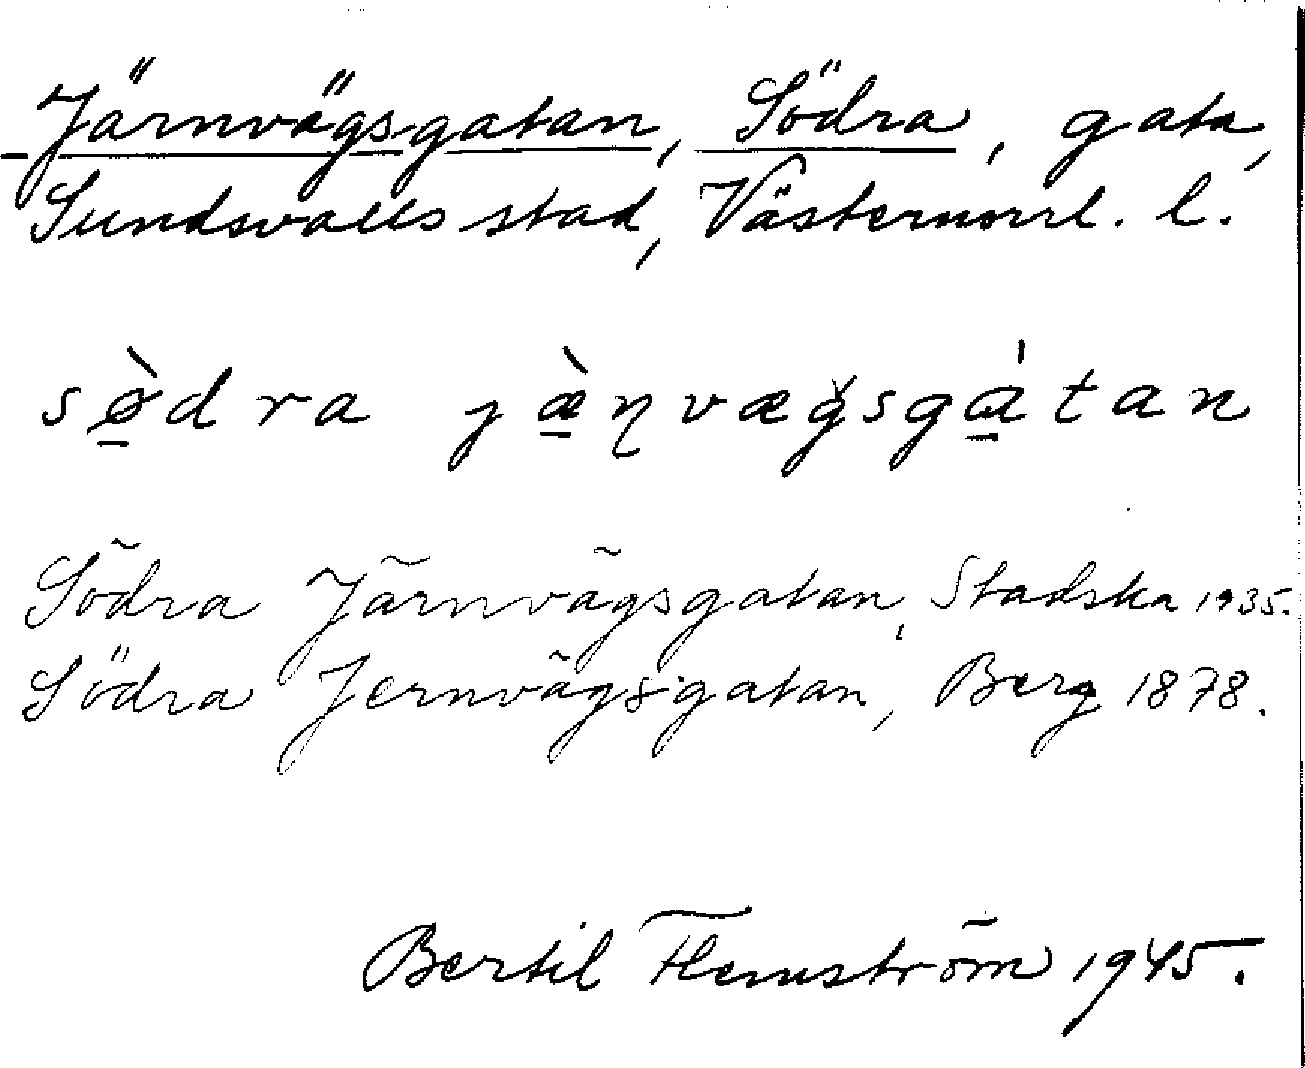 Järnvägsgatan, Södra, gata,
Sundsvalls stad, Västernorrl. l.
sø̀dra jæ̀ɳvægsgátan
Södra Järnvägsgatan, Stadska 1935.
Södra Jernvägsgatan, Berg 1878.
Bertil Flemström 1945.